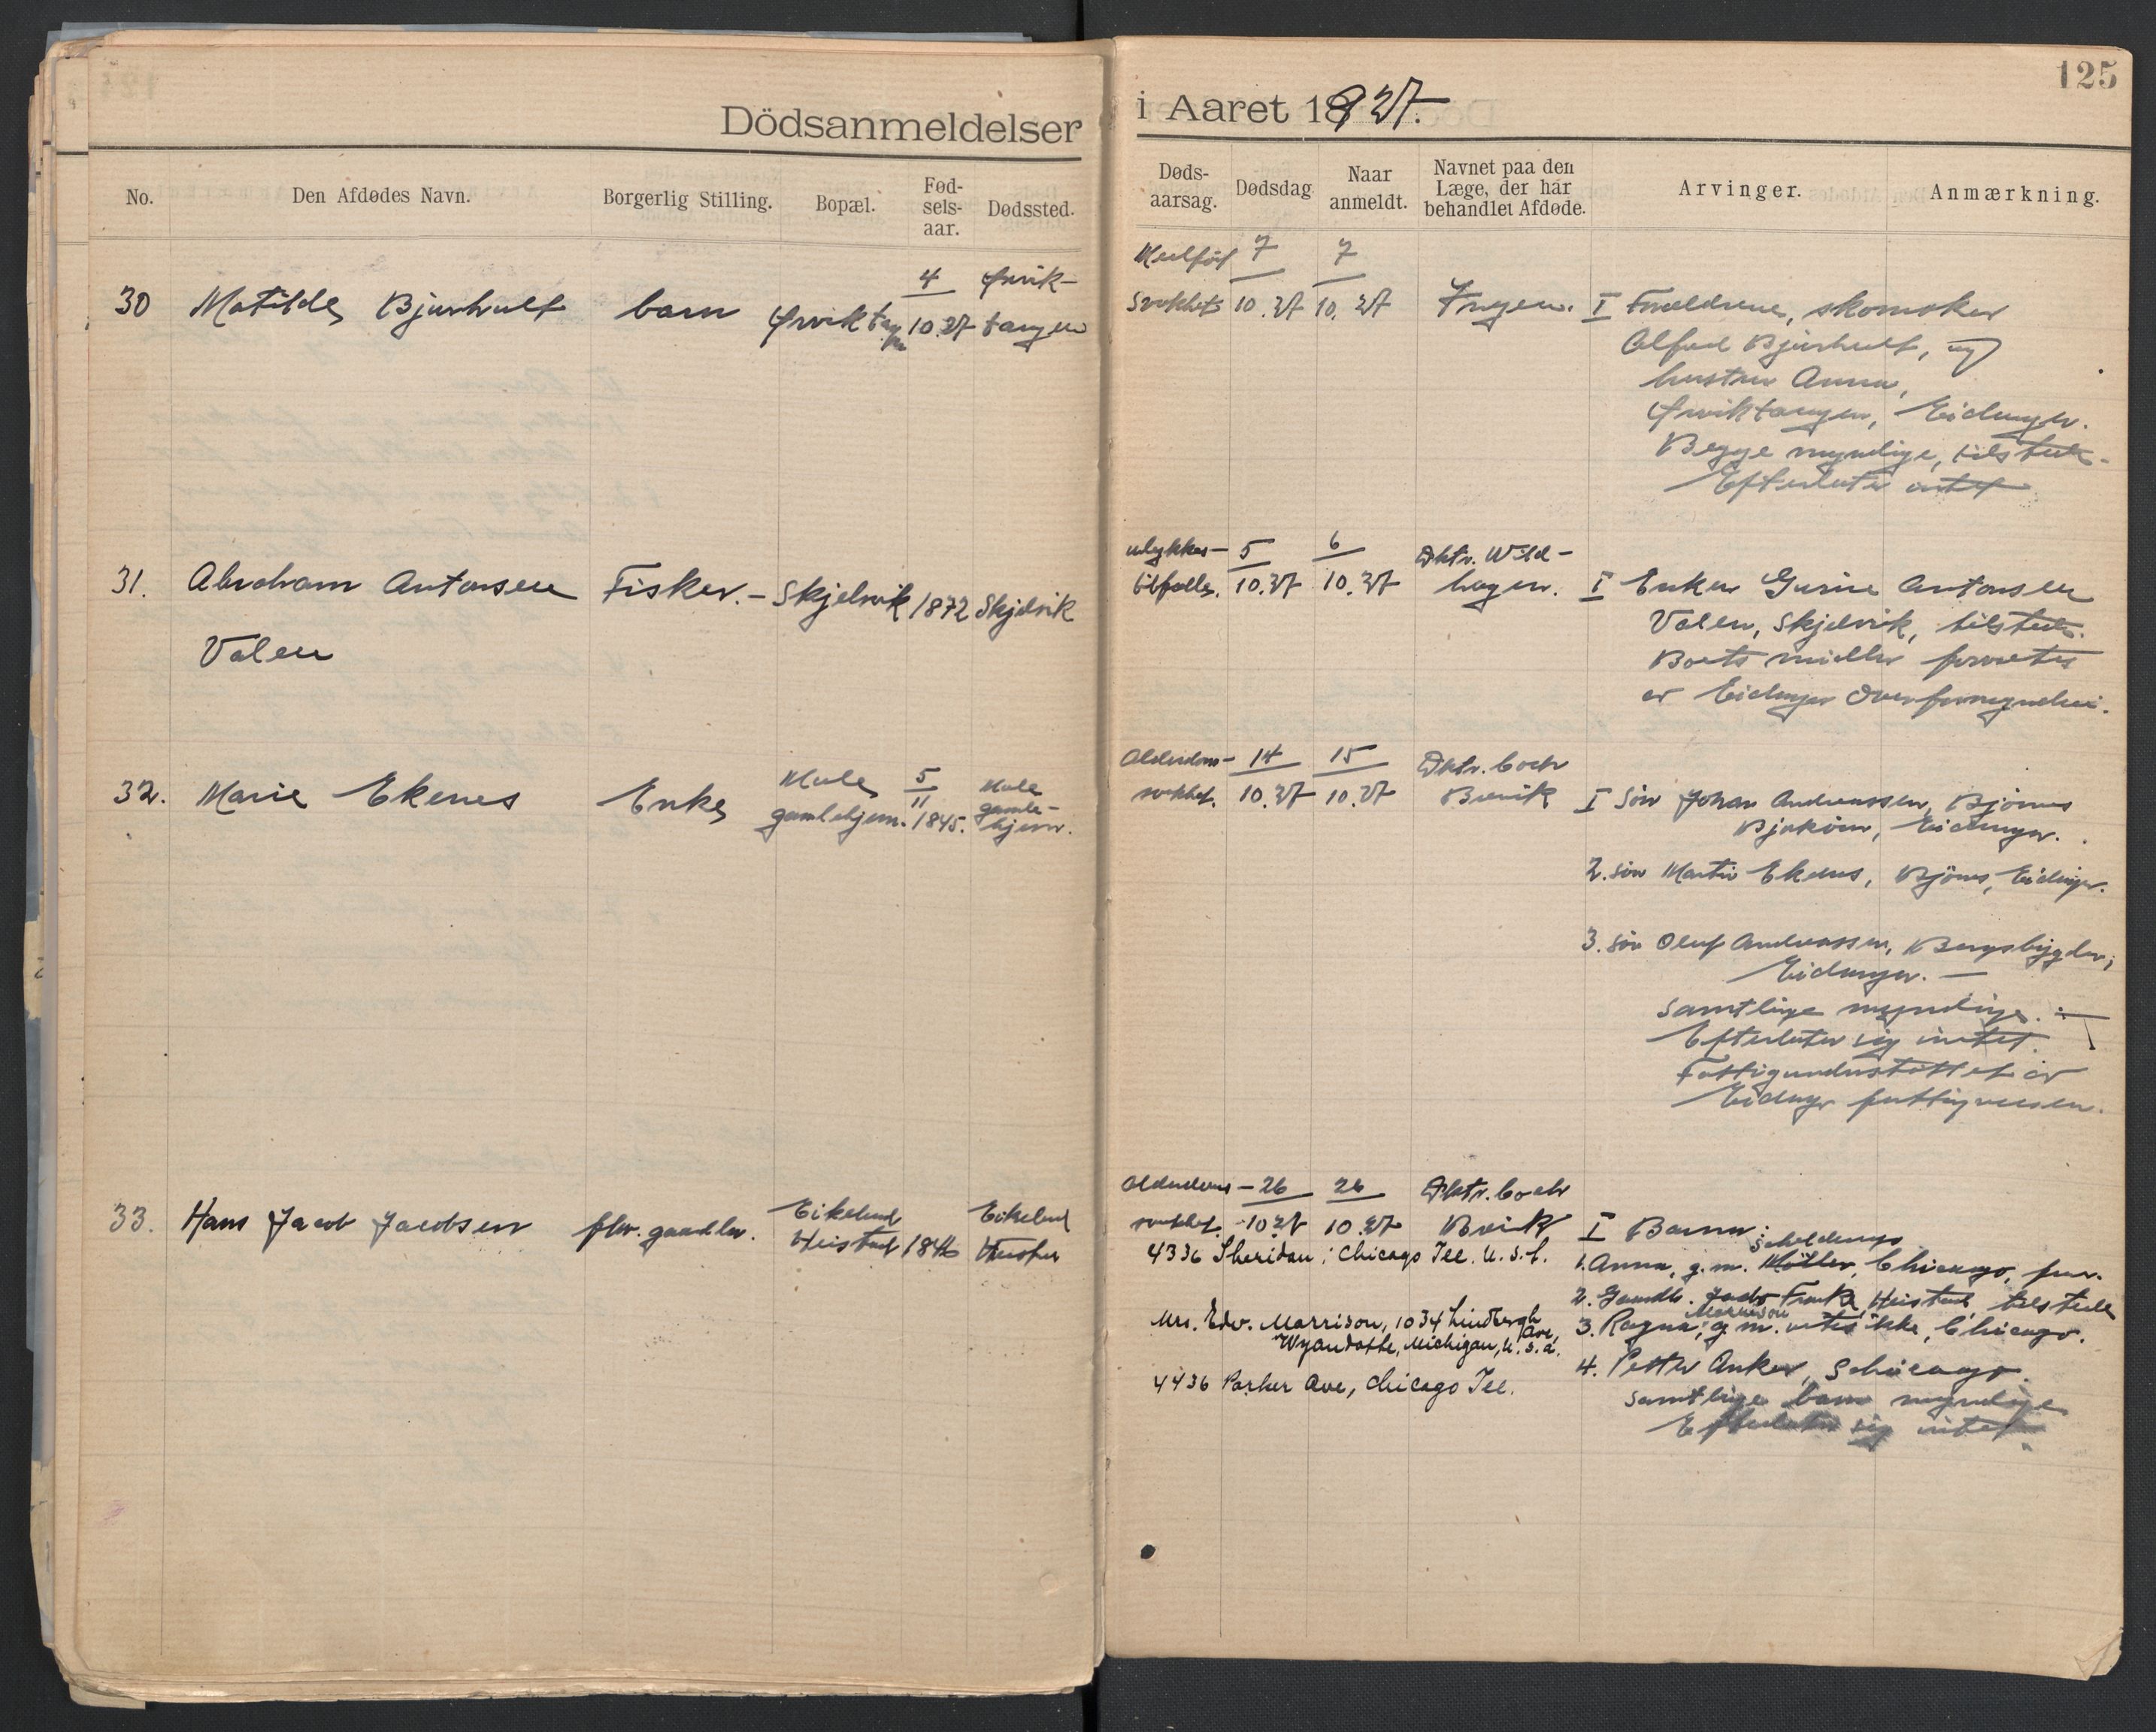 125
Dödsanmeldelser i Aaret 1927.
No. Den Afdødes Navn. Borgerlig Stilling. Bopæl. Fød-sels-aar. Dødssted.
Døds-aarsag. Dødsdag Naar anmeldt. Navnet paa den Læge, der har behandlet Afdøde. Arvinger. Anmærkning.
30 Matilde Bjurhult barn 4/10.27
7/10.27 7/10.27 Ingen.
I Forældrene, skomaker
Alfred Bjurhult, og
hustru Anna,
Eidanger.
Begge myndige, tilstede.
Efterlater intet
31. Abraham Antonsen Fisker. - Skjelvik 1872 Skjelvik
Valen
ulykkes-
tilfælle. 5/10.27 6/10.27 Dktr. Wild-
hagen.
I Enken Gurine Antonsen
Valen, Skjelvik, tilstede.
Boets midler
av Eidanger Overformynderi.
32. Marie Ekenes Enke Mule
gamlehjem. 5/11 1845. Mule
gamle-
hjem.
Alderdoms-
svakhet. 14/10.27 15/10.27 Dktr. Coch
Brevik
I Søn Johan Andreassen, Bjönnes
Eidanger.
2. søn Martin Ekenes, Bjönnes, Eidanger.
3. søn Oluf Andreassen, Bergsbygden,
Eidanger. -
Samtlige myndige.
Efterlater sig intet.
Fattigunderstöttet av
Eidanger fattigvæsen.
33. Hans Jacob Jacobsen fhv. gaardbr. Eikelund
Heistad 1846 Eikelund
Alderdoms-
svakhet. 26/10.27 26/10.27 Dktr. Coch
Brevik
I Barn:
4336 Sheridan, Chicago Ill. U.S.A.
1. Anna, g.m. Möller, Chicago,
2. Gaardb. Frank, Heistad, tilstede
Mrs. Edv. Morrison, 1034 Lindbergh Ave,
Wyandotte, Michigan, U.S.A.
3. Ragna, g.m. vites ikke, Chicago.
4436 Parker Ave, Chicago Ill.
4. Petter Anker, Schicago.
Samtlige barn myndige
Efterlater sig intet